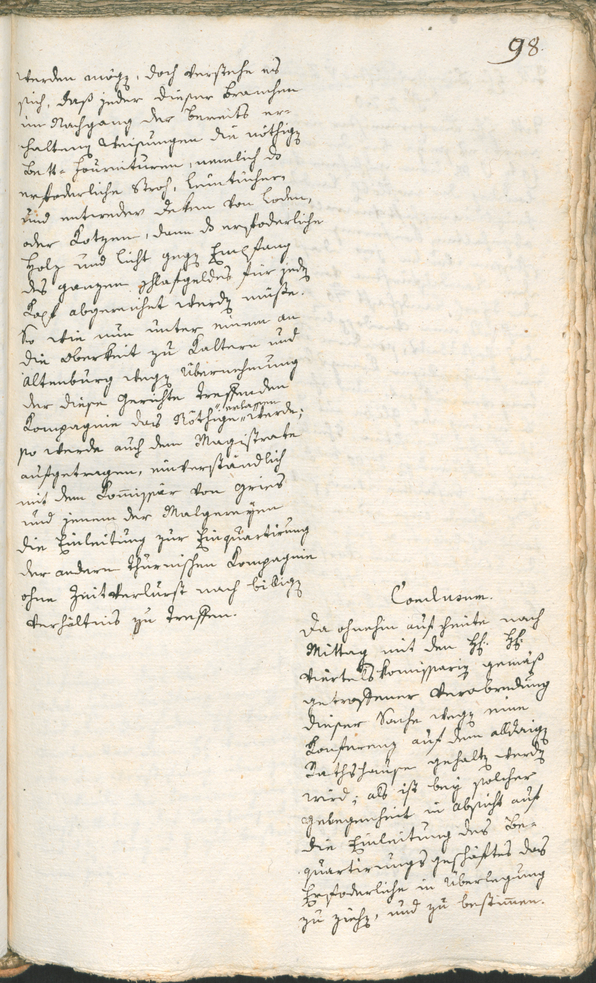 98.
werden möge, doch verstehe es
sich, daß jeder dieser Branchen
im Nachgang der bereits er-
haltenen Weisungen die nöthige
Bett-Fournituren, nemlich das
erfoderliche Stroh, Leintücher,
und entweder Deken von Loden,
oder Kotzen, dann das erfoderliche
Holz und Licht gegen Empfang
des ganzen Schlafgeldes für jeden
Kopf abgereichet werden müße.
So wie nun unter einem an
die Oberkeit zu Kaltern und
Altenburg wegen Übernehmung
der diese Gerichte treffenden
Kompagnie das Nöthige erlassen werde;
so werde auch dem Magistrate
aufgetragen, einverständlich
mit dem Kommissär von Gries
und jenem der Malgereyen
die Einleitung zur Einquartirung
der andern Thurnischen Kompagnie
ohne Zeitverlurst nach billigen
Verhältnis zu treffen.
Conclusum.
Da ohnehin auf heute nach
Mittag mit den H. H.
Viertelskommissarien gemäß
getroffener Verabredung
dieser Sache wegen eine
Konferenz auf dem alldaigen
Rathshause gehalten werden
wird; als ist bey solcher
Gelegenheit in Absicht auf
die Einleitung des Be-
quartirungsgeschäftes das
Erfoderliche in Überlegung
zu ziehen, und zu bestimmen.